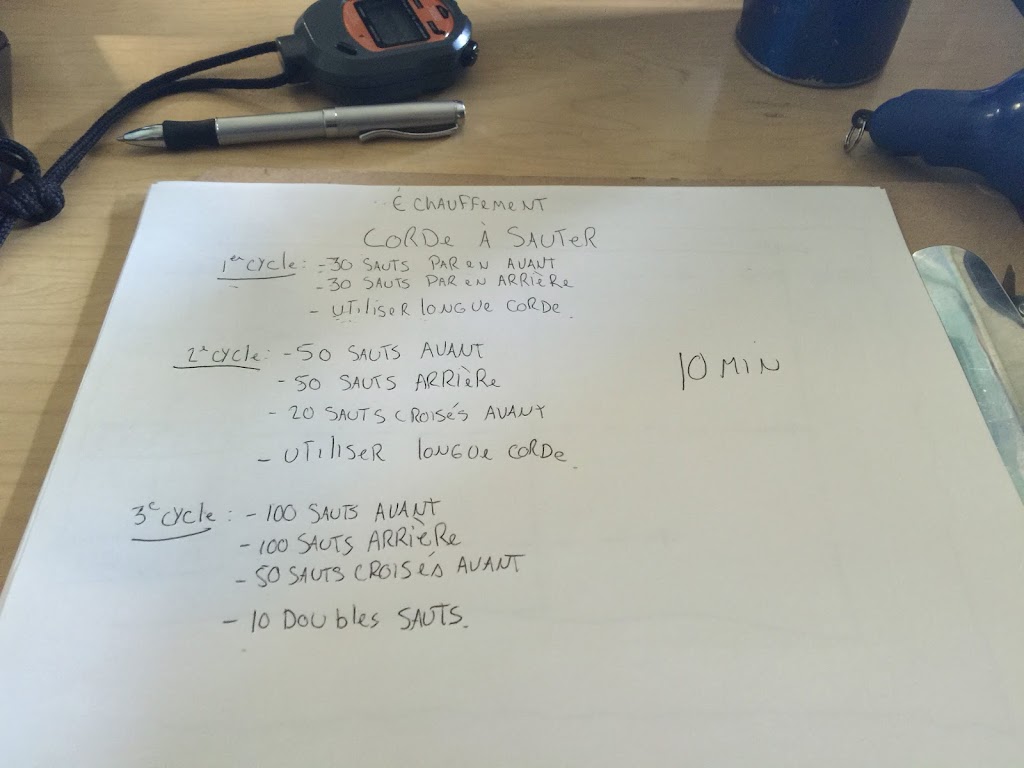 Échauffement
Corde à sauter
1er cycle: - 30 sauts par en avant
- 30 sauts par en arrière
- utiliser longue corde.
2e cycle: - 50 sauts avant
- 50 sauts arrière
- 20 sauts croisés avant
- utiliser longue corde.
10 min
3e cycle: - 100 sauts avant
- 100 sauts arrière
- 50 sauts croisés avant
- 10 doubles sauts.